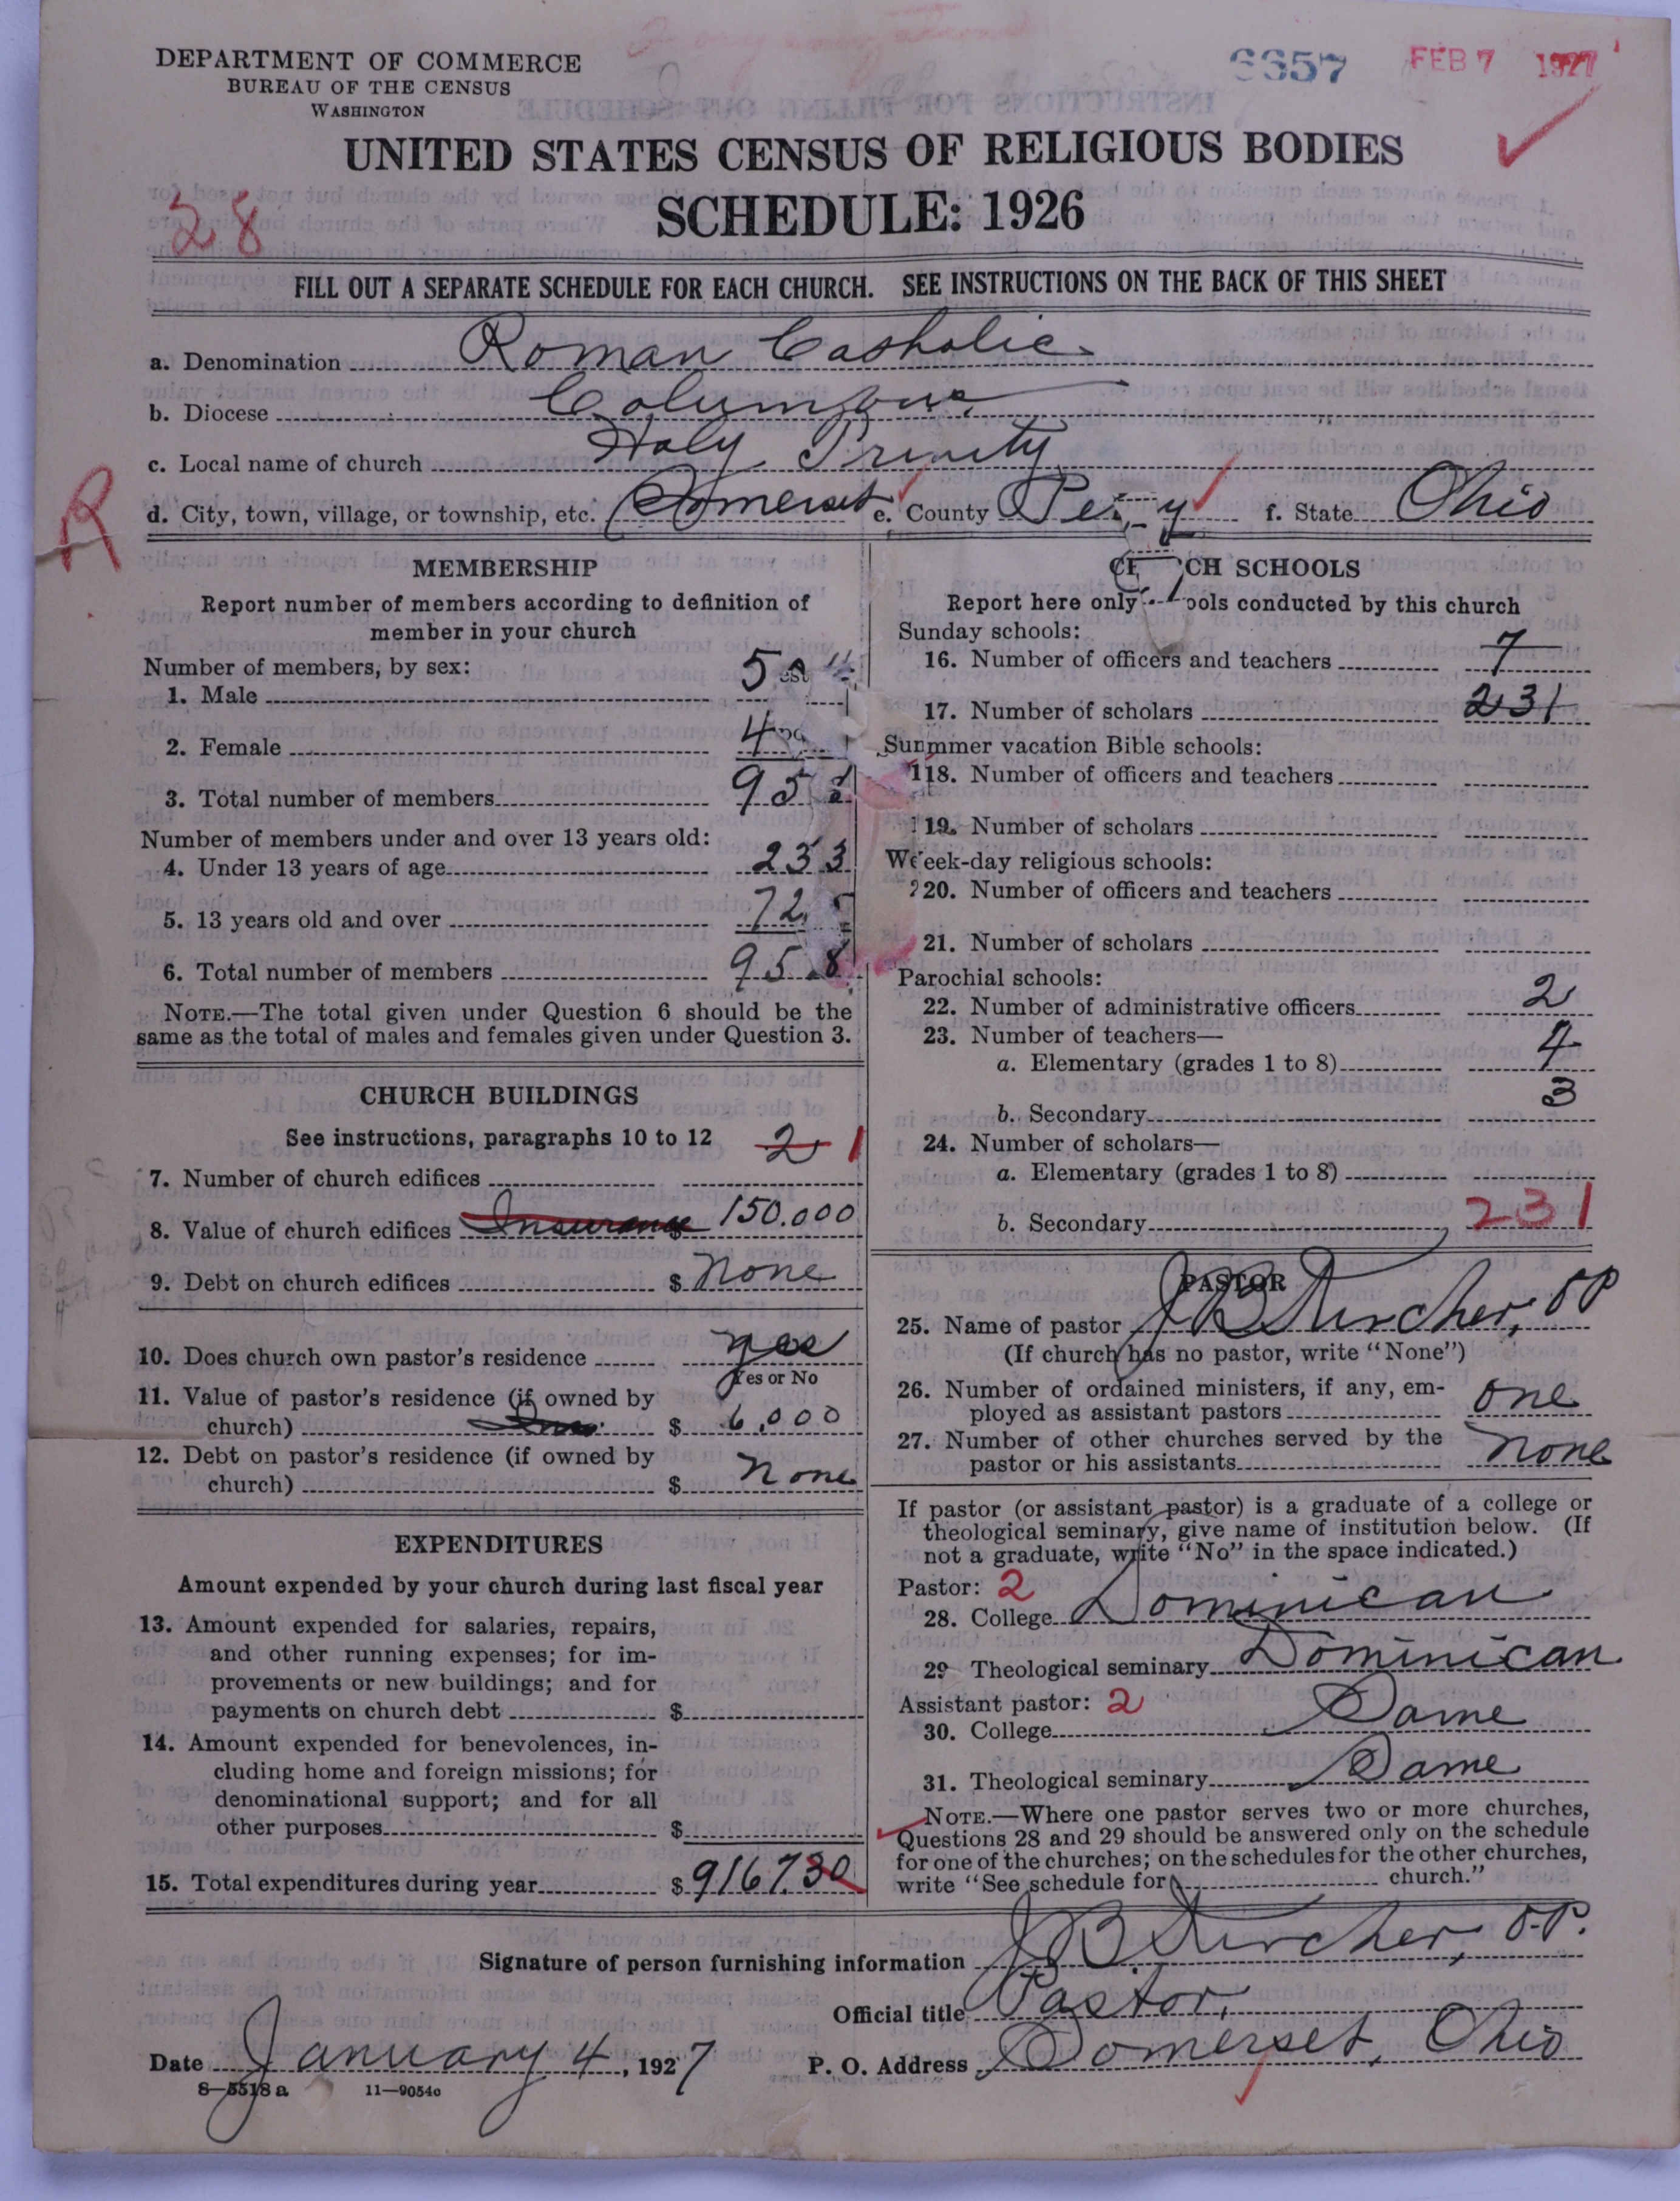 DEPARTMENT OF COMMERCE
BUREAU OF THE CENSUS
WASHINGTON
6657 FEB 7 1927
UNITED STATES CENSUS OF RELIGIOUS BODIES
SCHEDULE: 1926
28
FILL OUT A SEPARATE SCHEDULE FOR EACH CHURCH. SEE INSTRUCTIONS ON THE BACK OF THIS SHEET
a. Denomination Roman Catholic
b. Diocese Columbus
c. Local name of church Holy Trinity
R
d. City, town, village, or township, etc. Somerset e. County Perry f. State Ohio
MEMBERSHIP
Report number of members according to definition of
member in your church
Number of members, by sex:
1. Male
2. Female
3. Total number of members 958
Number of members under and over 13 years old:
4. Under 13 years of age 233
5. 13 years old and over 725
6. Total number of members 958
NOTE.—The total given under Question 6 should be the
same as the total of males and females given under Question 3.
CHURCH BUILDINGS
See instructions, paragraphs 10 to 12
7. Number of church edifices 2 1
8. Value of church edifices Insurance $ 150.000
9. Debt on church edifices $ none
10. Does church own pastor's residence yes
Yes or No
11. Value of pastor's residence (if owned by
church) Ins. $ 6,000
12. Debt on pastor's residence (if owned by
church) $ none
EXPENDITURES
Amount expended by your church during last fiscal year
13. Amount expended for salaries, repairs,
and other running expenses; for im-
provements or new buildings; and for
payments on church debt $
14. Amount expended for benevolences, in-
cluding home and foreign missions; for
denominational support; and for all
other purposes $
15. Total expenditures during year $ 9167.30
CH SCHOOLS
Report here only ools conducted by this church
Sunday schools:
16. Number of officers and teachers 7
17. Number of scholars 231
Summer vacation Bible schools:
18. Number of officers and teachers
19. Number of scholars
Week-day religious schools:
20. Number of officers and teachers
21. Number of scholars
Parochial schools:
22. Number of administrative officers 2
23. Number of teachers—
a. Elementary (grades 1 to 8) 4
b. Secondary 3
24. Number of scholars—
a. Elementary (grades 1 to 8)
b. Secondary 231
PASTOR
25. Name of pastor J B Kircher, O P
(If church has no pastor, write "None")
26. Number of ordained ministers, if any, em-
ployed as assistant pastors one
27. Number of other churches served by the
pastor or his assistants none
If pastor (or assistant pastor) is a graduate of a college or
theological seminary, give name of institution below. (If
not a graduate, write "No" in the space indicated.)
Pastor: 2
28. College Dominican
29 Theological seminary Dominican
Assistant pastor: 2
30. College Same
31. Theological seminary Same
NOTE.—Where one pastor serves two or more churches,
Questions 28 and 29 should be answered only on the schedule
for one of the churches; on the schedules for the other churches,
write "See schedule for church."
Signature of person furnishing information J B Kircher, O.P.
Official title Pastor,
Date January 4, 1927 P. O. Address Somerset, Ohio
8—5518 a 11—9054c